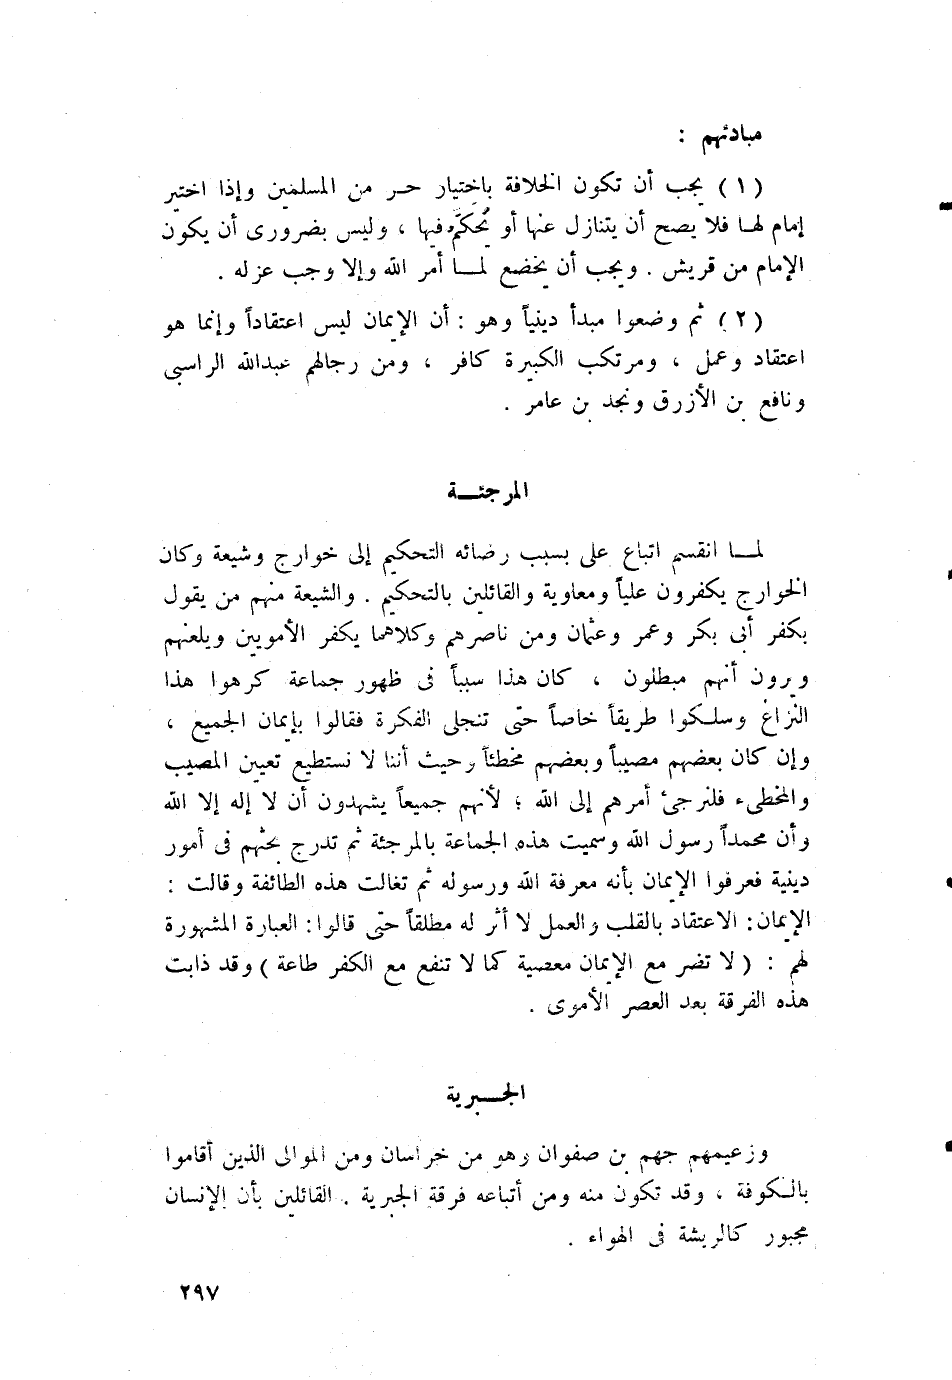 مبادئهم :
(١) يجب أن تكون الخلافة باختيار حـر من المسلمين وإذا اختير
إمام لهـا فلا يصح أن يتنازل عنها أو يُحكَّم فيها ، وليس بضرورى أن يكون
الإمام من قريش . ويجب أن يخضع لمـــا أمر الله وإلا وجب عزله .
(٢) ثم وضعوا مبدأ دينياً وهو : أن الإيمان ليس اعتقاداً وإنما هو
اعتقاد وعمل ، ومرتكب الكبيرة كافر ، ومن رجالهم عبدالله الراسبى
ونافع بن الأزرق ونجد بن عامر .
المرجئــة
لمـــا انقسم اتباع على بسبب رضائه التحكيم إلى خوارج وشيعة وكان
الخوارج يكفرون علياً ومعاوية والقائلين بالتحكيم . والشيعة منهم من يقول
بكفر أبى بكر وعمر وعثمان ومن ناصرهم وكلاهما يكفر الأمويين ويلعنهم
ويرون أنهم مبطلون ، كان هذا سبباً فى ظهور جماعة كرهوا هذا
النزاع وسلكوا طريقاً خاصاً حتى تنجلى الفكرة فقالوا بإيمان الجميع ،
وإن كان بعضهم مصيباً وبعضهم مخطئاً وحيث أننا لا نستطيع تعيين المصيب
والمخطىء فلنرجئ أمرهم إلى الله ؛ لأنهم جميعاً يشهدون أن لا إله إلا الله
وأن محمداً رسول الله وسميت هذه الجماعة بالمرجئة ثم تدرج بحثهم فى أمور
دينية فعرفوا الإيمان بأنه معرفة الله ورسوله ثم تغالت هذه الطائفة وقالت :
الإيمان : الاعتقاد بالقلب والعمل لا أثر له مطلقاً حتى قالوا : العبارة المشهورة
لهم : ( لا تضر مع الإيمان معصية كما لا تنفع مع الكفر طاعة ) وقد ذابت
هذه الفرقة بعد العصر الأموى .
الجـــبرية
وزعيمهم جهم بن صفوان وهو من خراسان ومن الموالى الذين أقاموا
بالكوفة ، وقد تكون منه ومن أتباعه فرقة الجبرية . القائلين بأن الإنسان
مجبور كالريشة فى الهواء .
٢٩٧